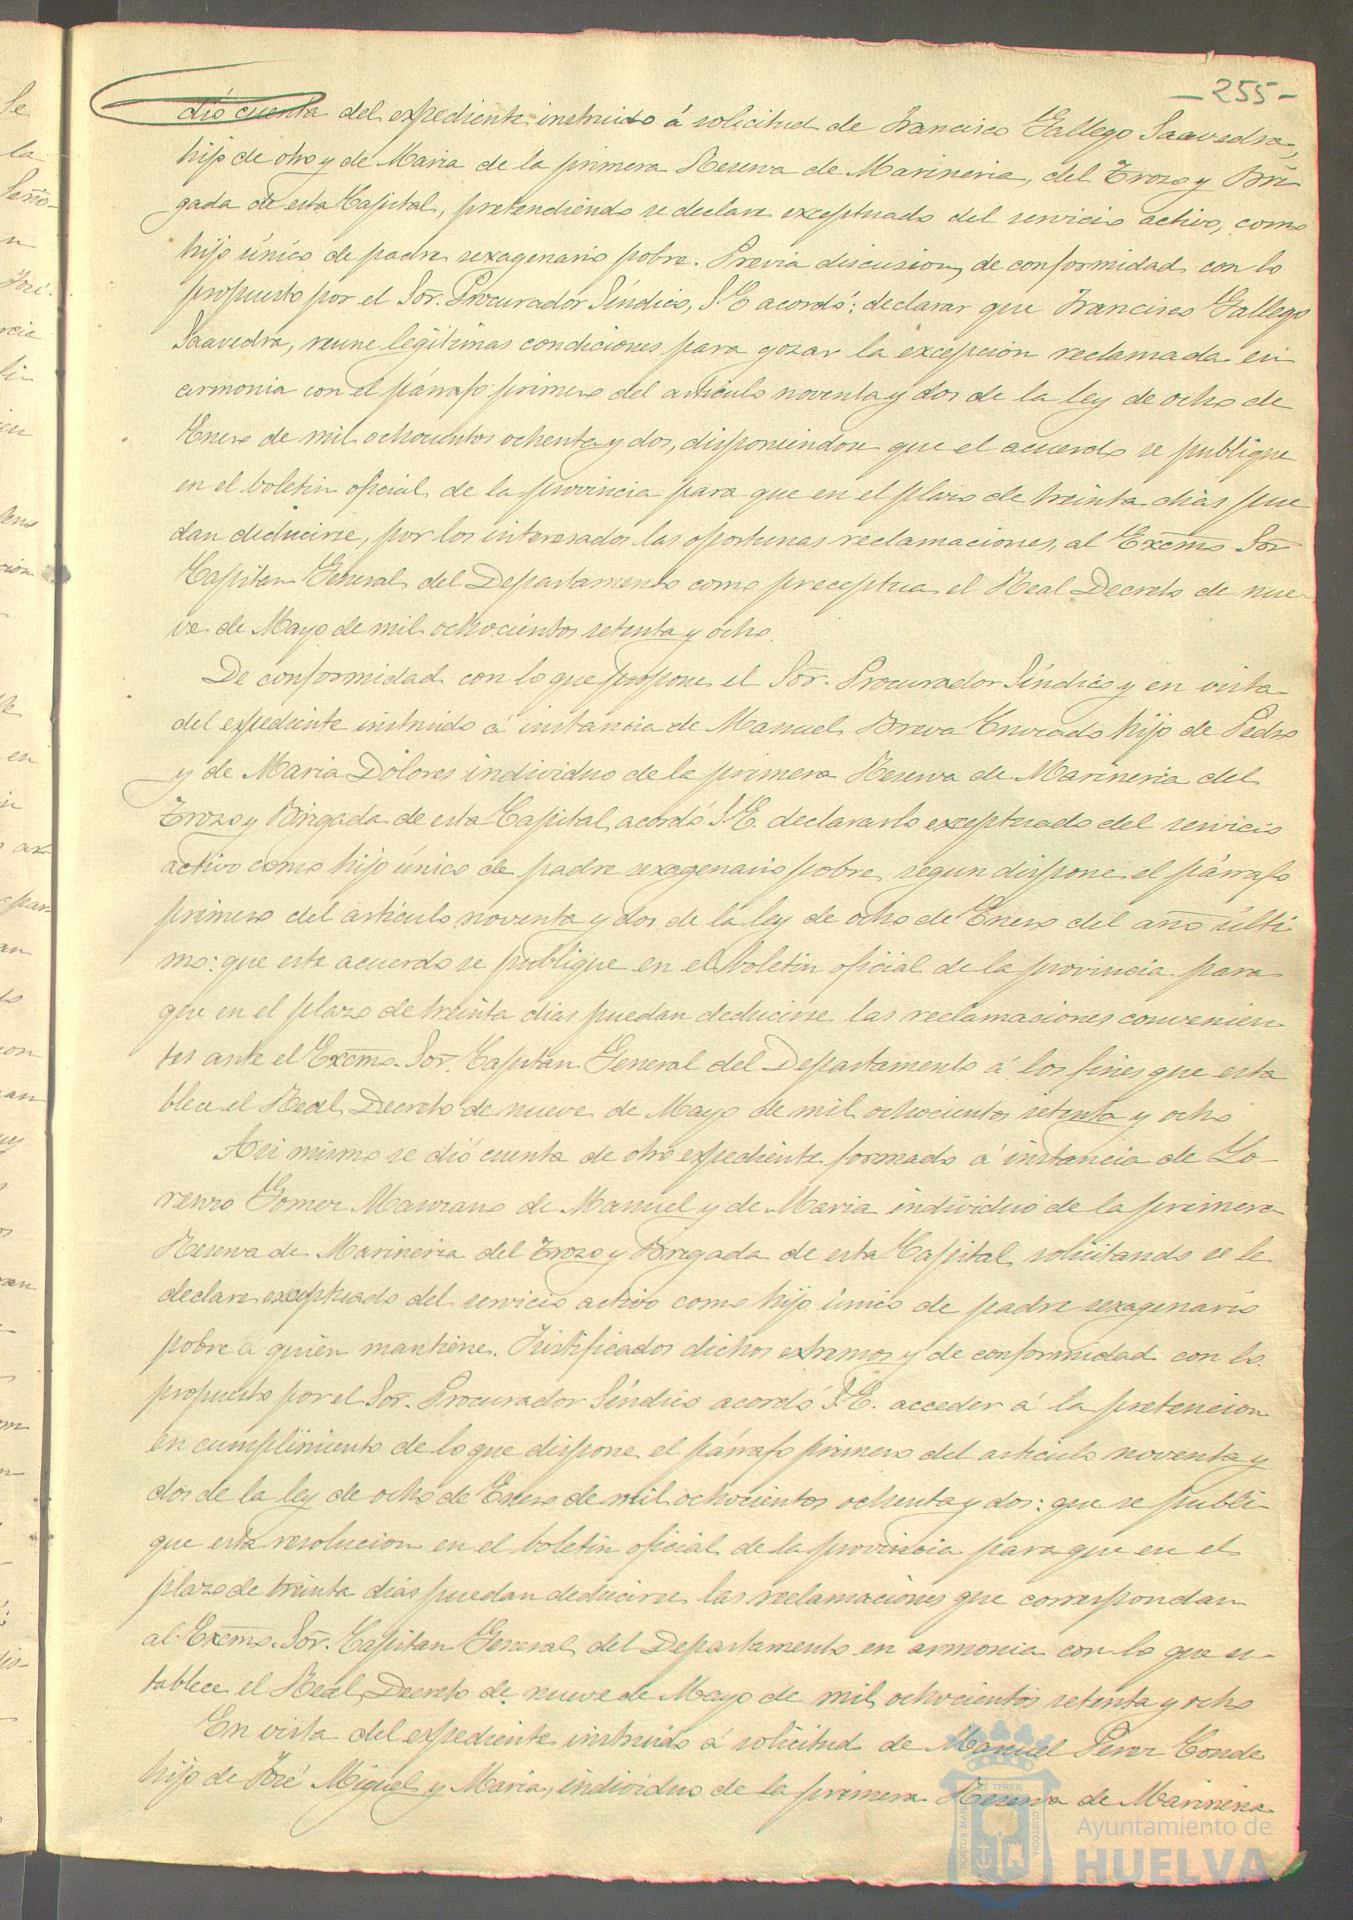 - 255 -
dió cuenta del expediente instruido á solicitud de Francisco Gallego Saavedra,
hijo de otro y de Maria de la primera Reserva de Marineria, del Trozo y Bri
gada de esta Capital, pretendiendo se declare exceptuado del servicio activo, como
hijo único de padre sexagenario pobre. Prévia discusion, de conformidad con lo
propuesto por el Sor. Procurador Síndico, S. E. acordó: declarar que Francisco Gallego
Saavedra, reune legitimas condiciones para gozar la excepcion reclamada en
armonia con el párrafo primero del articulo noventa y dos de la ley de ocho de
Enero de mil ochocientos ochenta y dos, disponiendose que el acuerdo se publique
en el boletin oficial de la provincia para que en el plazo de treinta dias pue
dan deducirse, por los interesados las oportunas reclamaciones, al Excmo Sor
Capitan General del Departamento como preceptua el Real Decreto de nue-
ve de Mayo de mil ochocientos setenta y ocho.
De conformidad con lo que propone el Sor. Procurador Síndico y en vista
del expediente instruido á instancia de Manuel Breva hijo de Pedro
y de Maria Dolores individuo de la primera Reserva de Marineria del
Trozo y Brigada de esta Capital, acordó S. E. declararlo exceptuado del servicio
activo como hijo único de padre sexagenario pobre, segun dispone el párrafo
primero del articulo noventa y dos de la ley de ocho de Enero del año últi
mo: que este acuerdo se publique en el boletin oficial de la provincia para
que en el plazo de treinta dias puedan deducirse las reclamaciones convenien
tes ante el Excmo. Sor. Capitan General del Departamento á los fines que esta
blece el Real Decreto de nueve de Mayo de mil ochocientos setenta y ocho
Asi mismo se dió cuenta de otro expediente formado á instancia de Lo-
renzo Gomez Manzano de Manuel y de Maria individuo de la primera
Reserva de Marineria del Trozo y Brigada de esta Capital, solicitando se le
declare exceptuado del servicio activo como hijo único de padre sexagenario
pobre á quien mantiene. Justificados dichos extremos y de conformidad con lo
propuesto por el Sor. Procurador Síndico acordó S. E. acceder á la pretencion
en cumplimiento de lo que dispone el párrafo primero del articulo noventa y
dos de la ley de ocho de Enero de mil ochocientos ochenta y dos: que se publi
que esta resolucion en el boletin oficial de la provincia para que en el
plazo de treinta dias puedan deducirse las reclamaciones que correspondan
al Excmo. Sor. Capitan General del Departamento en armonia con lo que es-
tablece el Real Decreto de nueve de Mayo de mil ochocientos setenta y ocho
En vista del expediente instruido á solicitud de Manuel Perez Conde
hijo de José Miguel y Maria, individuo de la primera Reserva de Marineria
Ayuntamiento de
HUELVA